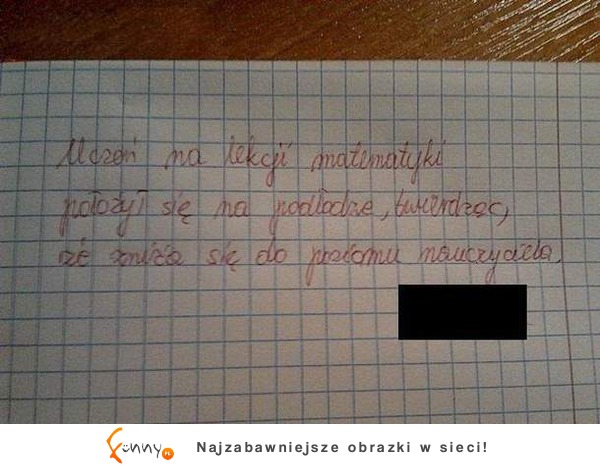 Uczeń na lekcji matematyki
położył się na podłodze, twierdząc,
że zniża się do poziomu nauczyciela.
funny.pl Najzabawniejsze obrazki w sieci!